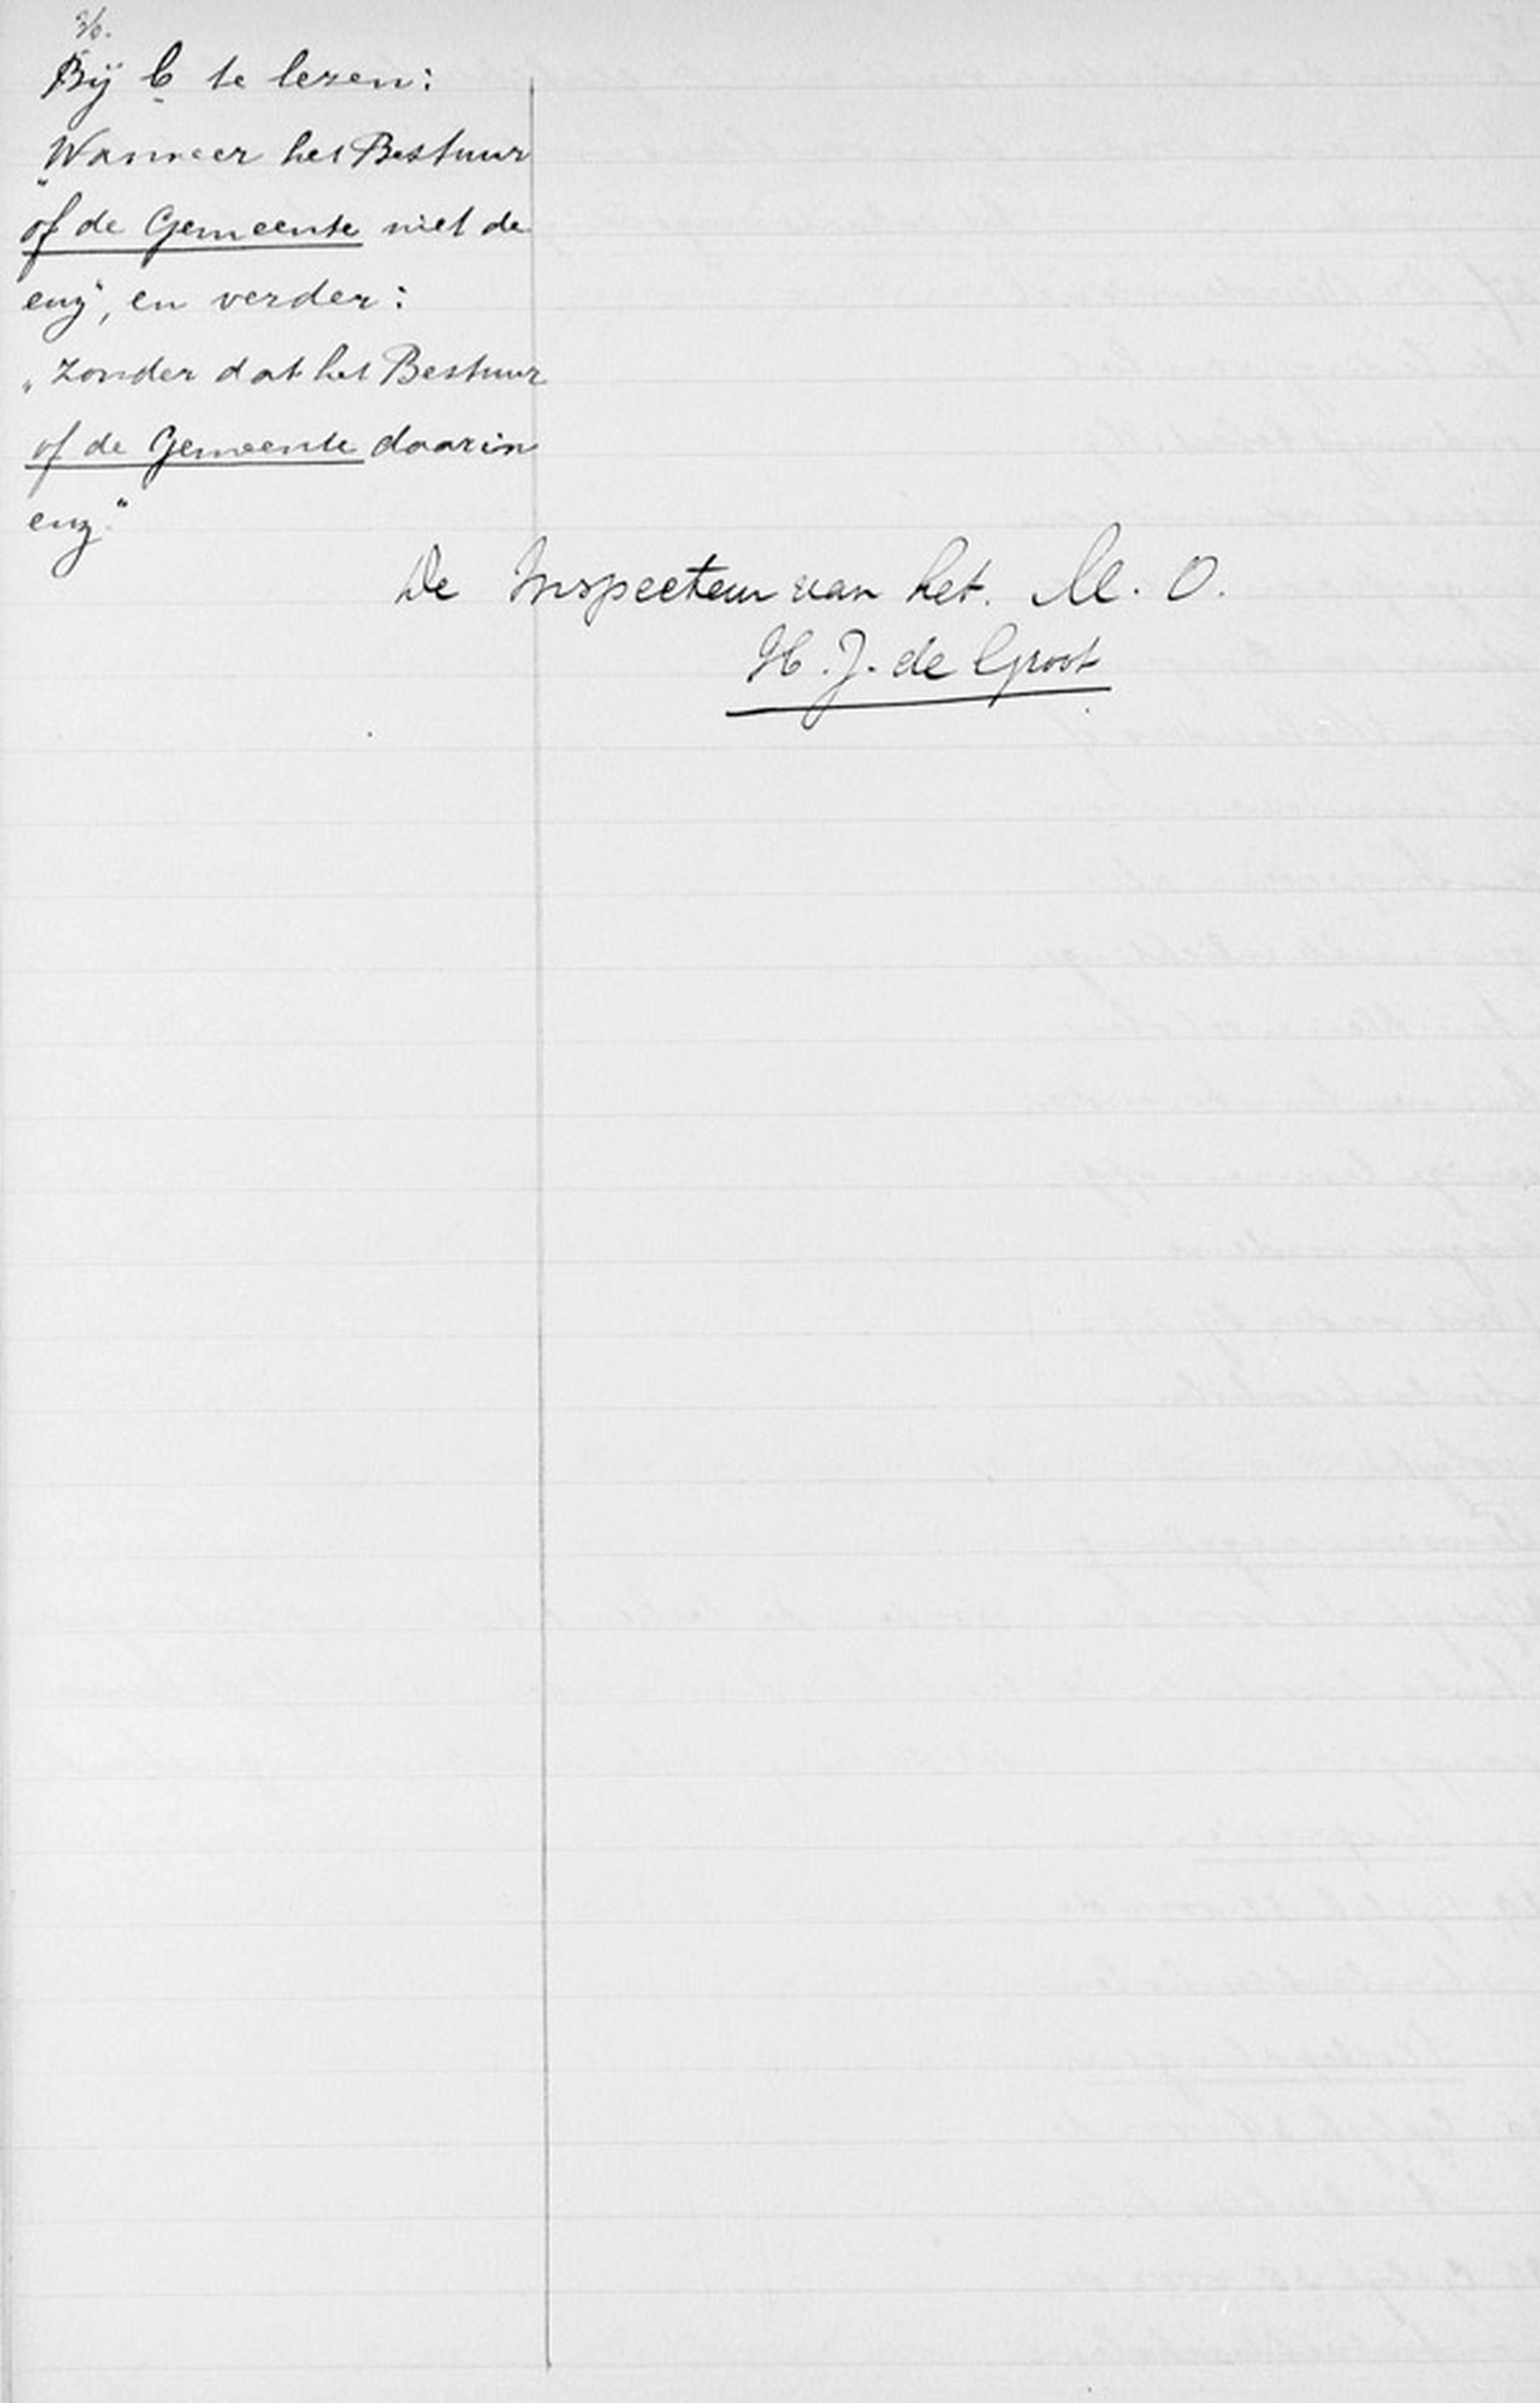 36.
Bij b te lezen:
„Wanneer het Bestuur
of de Gemeente niet de
enz", en verder:
„zonder dat het Bestuur
of de Gemeente daarin
enz."
De Inspecteur van het. M. O.
H. J. de Groot